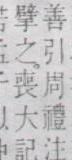 善引周禮注
擘之喪大記